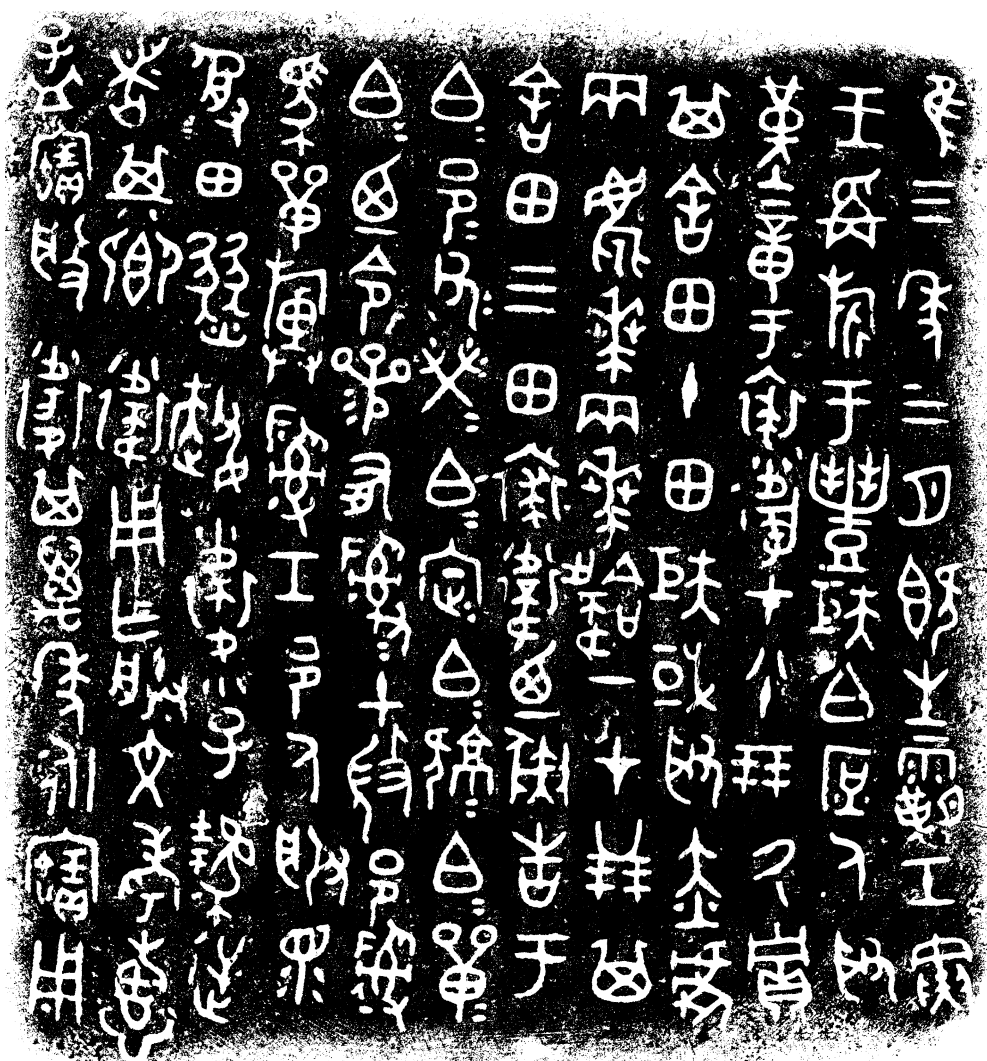 隹三年三月既生霸壬寅
王爯旂于豐矩白庶人取
堇章于裘衛才八十朋氒貯
其舍田十田矩或取赤虎
兩䴥𠦪兩𠦪韐一才廿朋其
舍田三田裘衛廼彘告于
白邑父榮白定白𤔲白單
白廼令參有𤔲𤔲土微邑𤔲
馬單旟𤔲工邑人服眔
受田燹趞衛小子逆
者其卿衛用乍朕文考惠
孟寶般衛其萬年永寶用